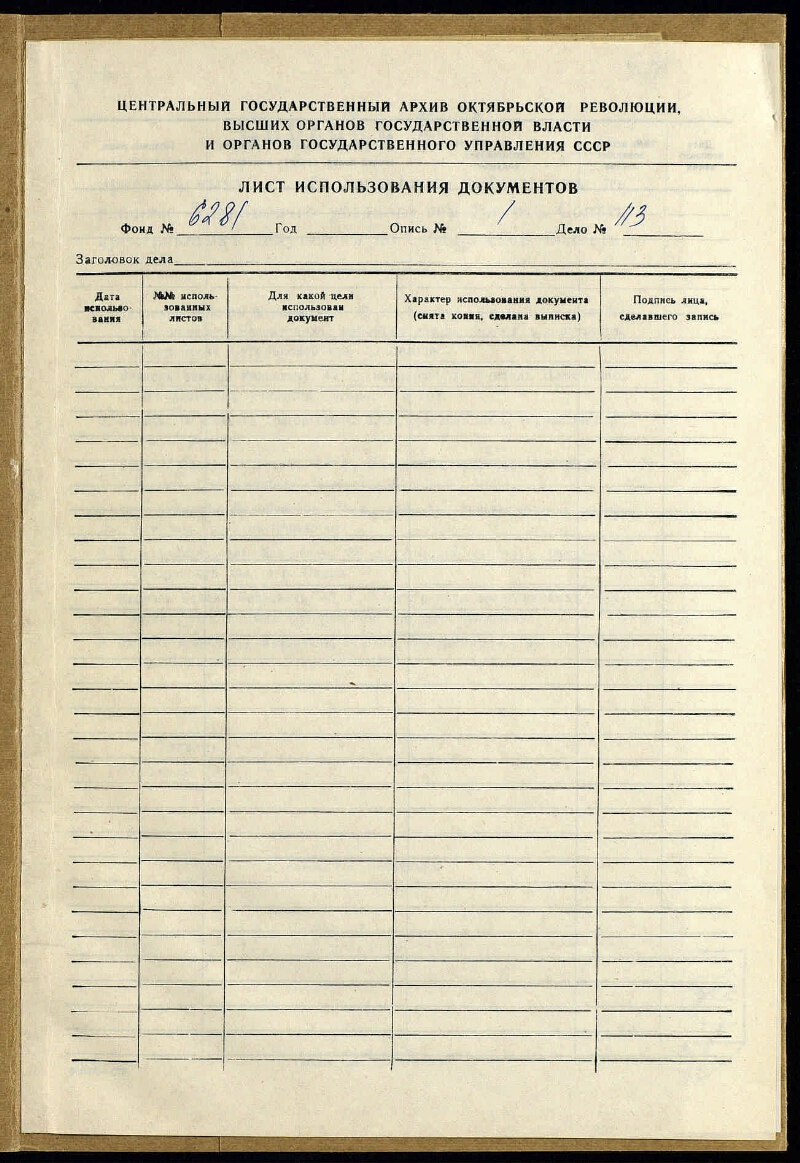 ЦЕНТРАЛЬНЫЙ ГОСУДАРСТВЕННЫЙ АРХИВ ОКТЯБРЬСКОЙ РЕВОЛЮЦИИ,
ВЫСШИХ ОРГАНОВ ГОСУДАРСТВЕННОЙ ВЛАСТИ
И ОРГАНОВ ГОСУДАРСТВЕННОГО УПРАВЛЕНИЯ СССР
ЛИСТ ИСПОЛЬЗОВАНИЯ ДОКУМЕНТОВ
Фонд № 6281 Год Опись № 1 Дело № 113
Заголовок дела
Дата
использо-
вания
№№ исполь-
зованных
листов
Для какой цели
использован
документ
Характер использования документа
(снята копия, сделана выписка)
Подпись лица,
сделавшего запись